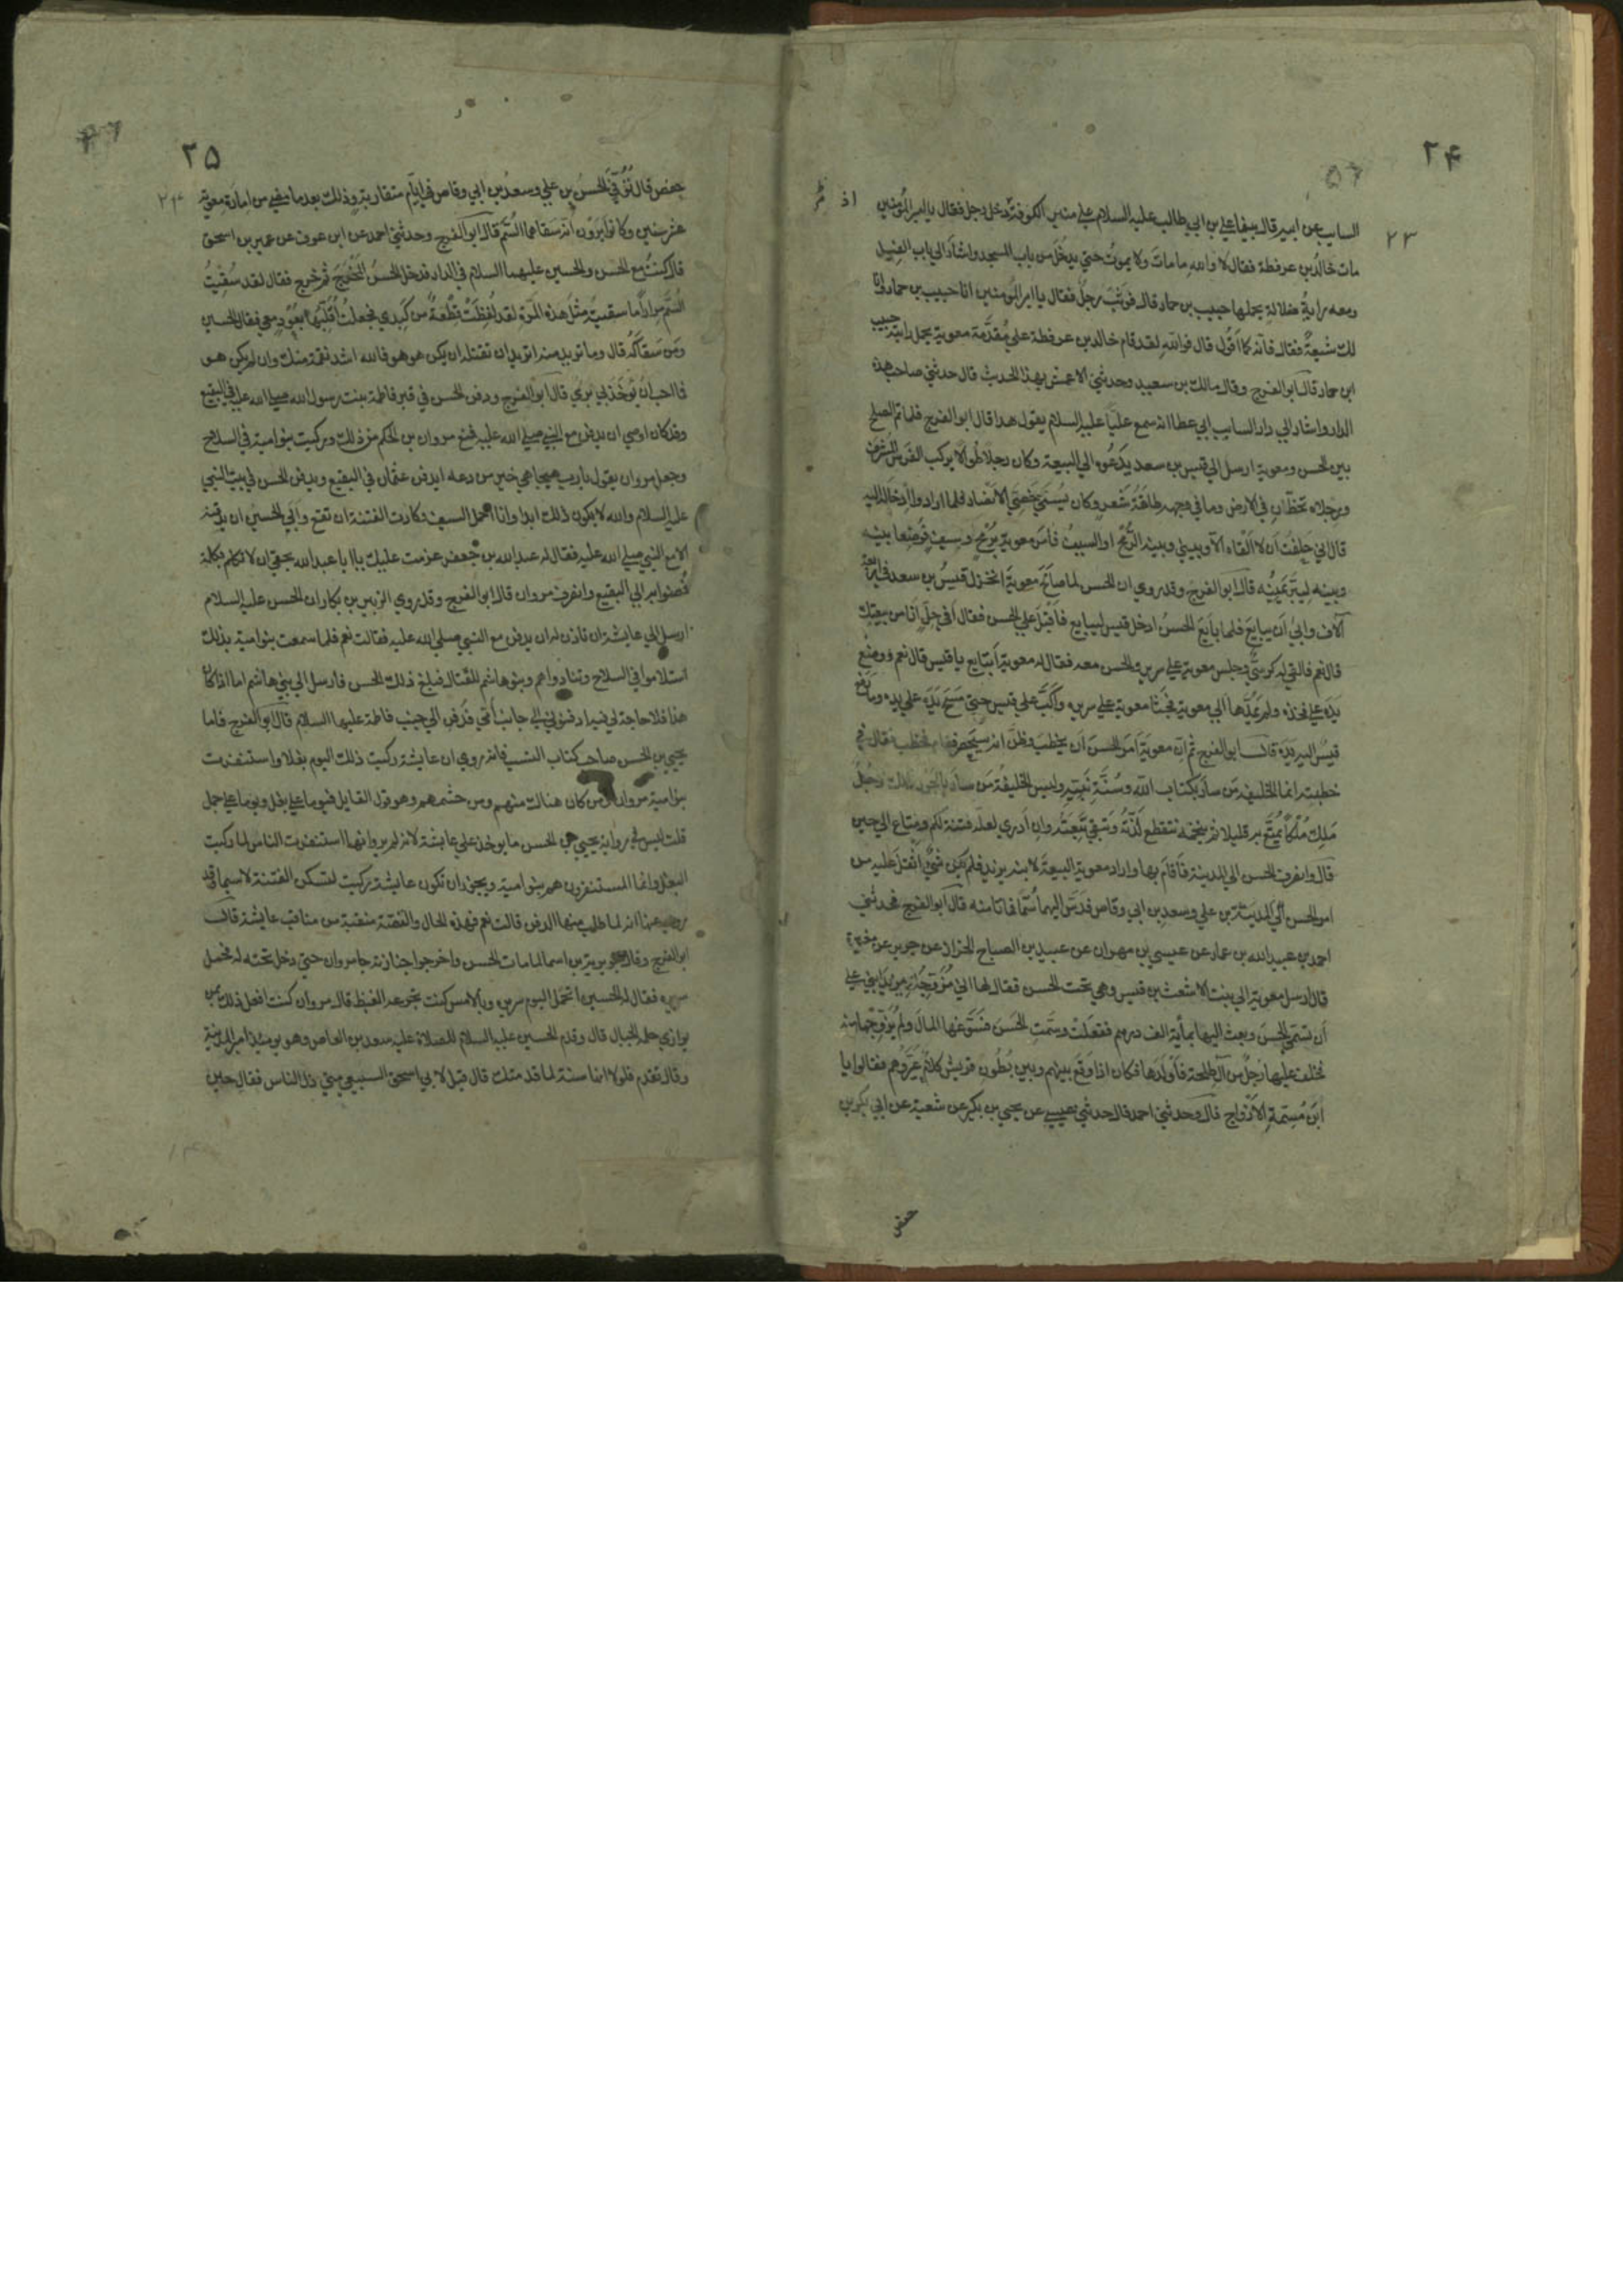 ٢۴
٢٣
الساب عن ابيه قال بينما علي بن ابي طالب عليه السلام علي منبر الكوفة اذ دخل رجل فقال يا امير المؤمنين
مات خالد بن عرفطة فقال لا والله ما مات ولا يموت حتي يدخل من باب المسجد واشار الي باب الفيل
ومعه راية ضلالة يحملها حبيب بن حماد قال فوثب رجل فقال يا امير المومنين انا حبيب بن حماد وانا
لك شيعة فقال فانه كما اقول قال فوالله لقد قام خالد بن عرفطة علي مقدمة معوية يحمل رايته حبيب
ابن حماد قال ابو الفرج وقال مالك بن سعيد وحدثني الاعمش بهذا الحديث قال حدثني صاحب هذه
الدار واشار الي دار السايب ابي عطا انه سمع عليا عليه السلام يقول هذا قال ابو الفرج فلما تم الصلح
بين الحسن ومعوية ارسل الي قيس بن سعد يدعوه الي البيعة وكان رجلا طوالا يركب الفرس المشرف
ورجلاه تخطان في الارض وما في وجهه طاقة شعر وكان يسمي خصي الانصار فلما ارادوا ادخاله اليه
قال اني حلفت ان لا القاه الا وبيني وبينه الرمح او السيف فامر معوية برمح وسيف فوضعا بينه
وبينه ليبر يمينه قال ابو الفرج وقد روي ان الحسن لما صالح معوية انخزل قيس بن سعد في اربعة
آلاف وابي ان يبايع فلما بايع الحسن ادخل قيس ليبايع فاقبل علي الحسن فقال افي حل انا من بيعتك
قال نعم فالقي له كرسي وجلس معوية علي سرير والحسن معه فقال له معوية اتبايع يا قيس قال نعم ووضع
يده علي فخذه ولم يمدها الي معوية فجثا معوية علي سريره واكب علي قيس حتي مسح يده علي يده وما رفع
قيس اليه يده قال ابو الفرج ثم ان معوية امر الحسن ان يخطب وظن انه سيحصر فقام فخطب فقال في
خطبته انما الخليفة من سار بكتاب الله وسنة نبيه وليس الخليفة من سار بالجور ذلك رجل
ملك ملكا يمتع به قليلا ثم يتنخمه تنقطع لذته وتبقي تبعته وان ادري لعله فتنة لكم ومتاع الي حين
قال وانصرف الحسن الي المدينة فاقام بها واراد معوية البيعة لابنه يزيد فلم يكن شي اثقل عليه من
امر الحسن بن علي وسعد بن ابي وقاص فدس اليهما سما فماتا منه قال ابو الفرج فحدثني
احمد بن عبيد الله بن عمار عن عيسي بن مهران عن عبيد بن الصباح الخزاز عن جرير عن مغيرة
قال ارسل معوية الي بنت الاشعث بن قيس وهي تحت الحسن فقال لها اني مزوجك يزيد ابني علي
ان تسمي الحسن وبعث اليها بمأية الف درهم ففعلت وسمت الحسن فسوغها المال ولم يزوجها منه
فخلف عليها رجل من آل طلحة فاولدها فكان اذا وقع بينهم وبين بطون قريش كلام عيروهم فقالوا يا
ابن مسمة الازواج قال وحدثني احمد قال حدثني عيسي عن يحيي بن بكير عن شعبة عن ابي بكر بن
حفص
٢۵
٢۴
حفص قال توفي الحسن بن علي وسعد بن ابي وقاص في ايام متقاربة وذلك بعد ما مضي من امارة معوية
عشر سنين وكانوا يرون انه سقاهما السم قال ابو الفرج وحدثني احمد عن ابن عوف عن عمير بن اسحق
قال كنت مع الحسن والحسين عليهما السلام في الدار فدخل الحسن المخرج ثم خرج فقال لقد سقيت
السم مرارا ما سقيت مثل هذه المرة لقد لفظت قطعة من كبدي فجعلت اقلبها بعود معي فقال الحسين
ومن سقاكه قال وما تريد منه اتريد ان تقتله ان يكن هو هو فالله اشد نقمة منك وان لم يكن هو
فما احب ان يوخذ بي بري قال ابو الفرج ودفن الحسن في قبر فاطمة بنت رسول الله صلي الله عليه في البقيع
وقد كان اوصي ان يدفن مع النبي صلي الله عليه فمنع مروان بن الحكم من ذلك وركبت بنو امية في السلاح
وجعل مروان يقول يا رب هيجا هي خير من دعه ايدفن عثمان في البقيع ويدفن الحسن في بيت النبي
عليه السلام والله لا يكون ذلك ابدا وانا احمل السيف وكادت الفتنة ان تقع وابي الحسين ان يدفنه
الا مع النبي صلي الله عليه فقال له عبد الله بن جعفر عزمت عليك يا ابا عبد الله بحقي ان لا تكلم بكلمة
فمضوا به الي البقيع وانصرف مروان قال ابو الفرج وقد روي الزبير بن بكار ان الحسن عليه السلام
ارسل الي عايشة ان تاذن له ان يدفن مع النبي صلي الله عليه فقالت نعم فلما سمعت بنو امية بذلك
استلاموا في السلاح وتنادوا هم وبنو هاشم للقتال فبلغ ذلك الحسن فارسل الي بني هاشم اما اذا كان
هذا فلا حاجة لي فيه ادفنوني الي جانب امي فدفن الي جنب فاطمة عليها السلام قال ابو الفرج فاما
يحيي بن الحسن صاحب كتاب النسب فانه روي ان عايشة ركبت ذلك اليوم بغلا واستنفرت
بنو امية مروان ومن كان هناك منهم ومن حشمهم وهو قول القايل فيوما علي بغل ويوما علي جمل
قلت ليس في رواية يحيي بن الحسن ما يوخذ علي عايشة لانه لم يرو انها استنفرت الناس لما ركبت
البغل وانما المستنفرون هم بنو امية ويجوز ان تكون عايشة ركبت لتسكن الفتنة لا سيما وقد
روي عنها انه لما طلب منها الدفن قالت نعم فهذه الحال والقصة منقبة من مناقب عايشة قال
ابو الفرج وقال جويرية بن اسما لما مات الحسن واخرجوا جنازته جا مروان حتي دخل تحته فحمل
سريره فقال له الحسين اتحمل اليوم سريره وبالامس كنت تجرعه الغيظ قال مروان كنت افعل ذلك بمن
يوازي حلمه الجبال قال وقدم الحسين عليه السلام للصلاة عليه سعيد بن العاص وهو يومئذ امير المدينة
وقال تقدم فلولا انها سنة لما قدمتك قال قيل لابي اسحق السبيعي متي ذل الناس فقال حين